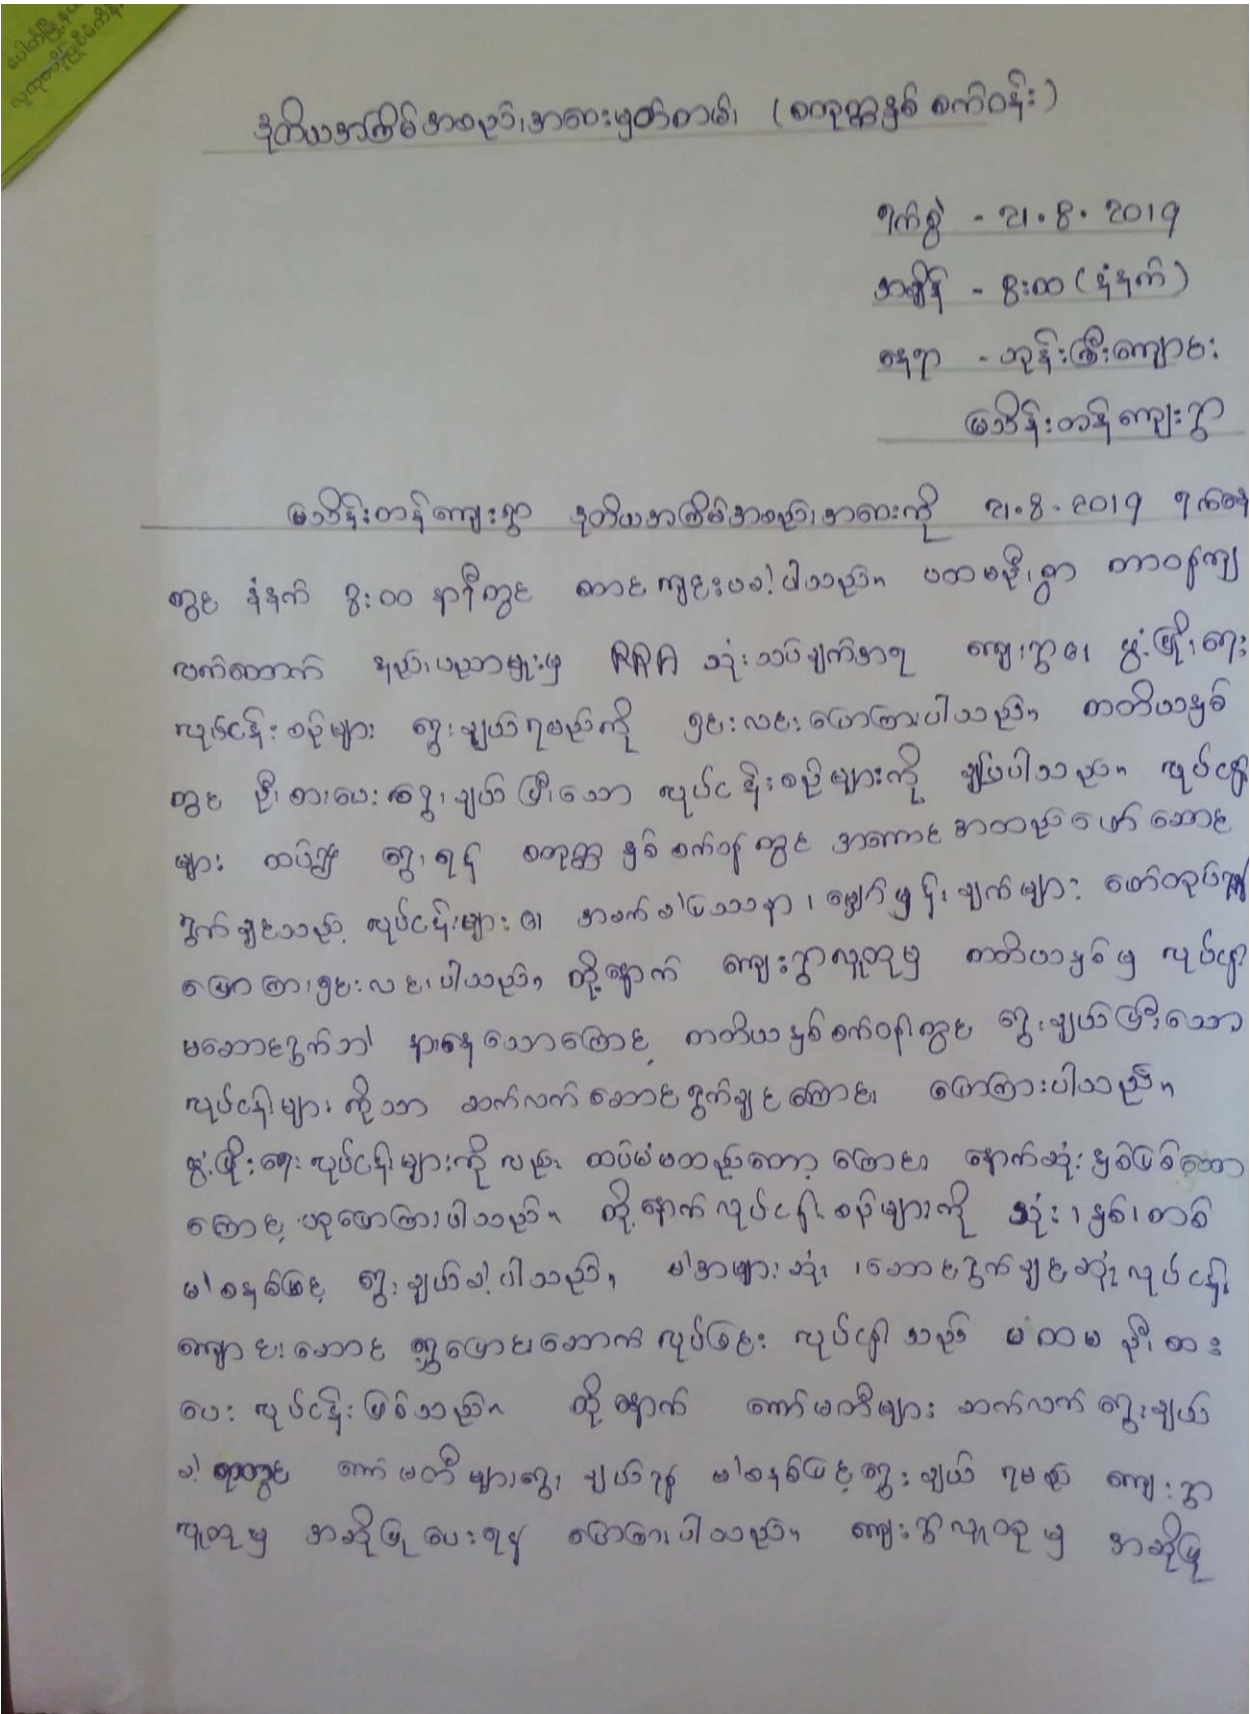 ပေါက်မြို့နယ်
လူထုဗဟိုပြုစီမံကိန်း
ဒုတိယအကြိမ်အစည်းအဝေးမှတ်တမ်း (စတုတ္ထနှစ် စက်ဝန်း)
ရက်စွဲ - ၂၁.၈.၂၀၁၉
အချိန် - ၈:၀၀ (နံနက်)
နေရာ - ဘုန်းကြီးကျောင်း
မြသိန်းတန်ကျေးရွာ
မြသိန်းတန်ကျေးရွာ ဒုတိယအကြိမ်အစည်းအဝေးကို ၂၁.၈.၂၀၁၉ ရက်နေ့
တွင် နံနက် ၈:၀၀ နာရီတွင် စတင်ကျင်းပခဲ့ပါသည်။ ပထမဦးစွာ တာဝန်ကျ
လက်ထောက် နည်းပညာမှူးမှ PRA သုံးသပ်ချက်အရ ကျေးရွာ၏ ဖွံ့ဖြိုးရေး
လုပ်ငန်းစဉ်များ ရွေးချယ်ရမည်ကို ရှင်းလင်းပြောကြားပါသည်။ တတိယနှစ်
တွင် ဦးစားပေးရွေးချယ်ပြီးသော လုပ်ငန်းစဉ်များကို ချပြပါသည်။ လုပ်ငန်း
များ ထပ်မံ ရွေးရန် စတုတ္ထနှစ်စက်ဝန်းတွင် အကောင်အထည်ဖော်ဆောင်
ရွက်ချင်သည့် လုပ်ငန်းများ၏ အခက်ခဲပြဿနာ၊ မျှော်မှန်းချက်များ ဖော်ထုတ်ရန်
ပြောကြားရှင်းလင်းပါသည်။ ထို့နောက် ကျေးရွာလူထုမှ တတိယနှစ်မှ လုပ်ငန်း
မဆောင်ရွက်ဘဲ နားနေသောကြောင့် တတိယနှစ်စက်ဝန်းတွင် ရွေးချယ်ပြီးသော
လုပ်ငန်းများကိုသာ ဆက်လက်ဆောင်ရွက်ချင်ကြောင်း ပြောကြားပါသည်။
ဖွံ့ဖြိုးရေးလုပ်ငန်းများကိုလည်း ထပ်မံမထည့်တော့ကြောင်း နောက်ဆုံးနှစ်ဖြစ်သော
ကြောင့် ဟုပြောကြားပါသည်။ ထို့နောက်လုပ်ငန်းစဉ်များကို သုံး၊နှစ်၊တစ်
မဲစနစ်ဖြင့် ရွေးချယ်ခဲ့ပါသည်။ မဲအများဆုံး၊ ဆောင်ရွက်ချင်ဆုံးလုပ်ငန်း
ကျောင်းဆောင် ရွှေ့ပြောင်းဆောက်လုပ်ခြင်း လုပ်ငန်းသည် ပထမဦးစား
ပေးလုပ်ငန်းဖြစ်သည်။ ထို့နောက် ကော်မတီများ ဆက်လက်ရွေးချယ်
ခဲ့ရာတွင် ကော်မတီများရွေးချယ်ရန် မဲစနစ်ဖြင့်ရွေးချယ်ရမည် ကျေးရွာ
လူထုမှ အဆိုပြုပေးရန် ပြောကြားပါသည်။ ကျေးရွာလူထုမှ အဆိုပြု